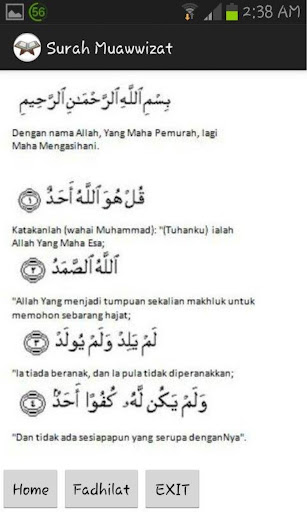 56
2:38 AM
Surah Muawwizat
بِسْمِ اللَّهِ الرَّحْمَٰنِ الرَّحِيمِ
Dengan nama Allah, Yang Maha Pemurah, lagi
Maha Mengasihani.
قُلْ هُوَ اللَّهُ أَحَدٌ ﴿١﴾
Katakanlah (wahai Muhammad): "(Tuhanku) ialah
Allah Yang Maha Esa;
اللَّهُ الصَّمَدُ ﴿٢﴾
"Allah Yang menjadi tumpuan sekalian makhluk untuk
memohon sebarang hajat;
لَمْ يَلِدْ وَلَمْ يُولَدْ ﴿٣﴾
"Ia tiada beranak, dan Ia pula tidak diperanakkan;
وَلَمْ يَكُن لَّهُۥ كُفُوًا أَحَدٌۢ ﴿٤﴾
"Dan tidak ada sesiapapun yang serupa denganNya".
Home Fadhilat EXIT